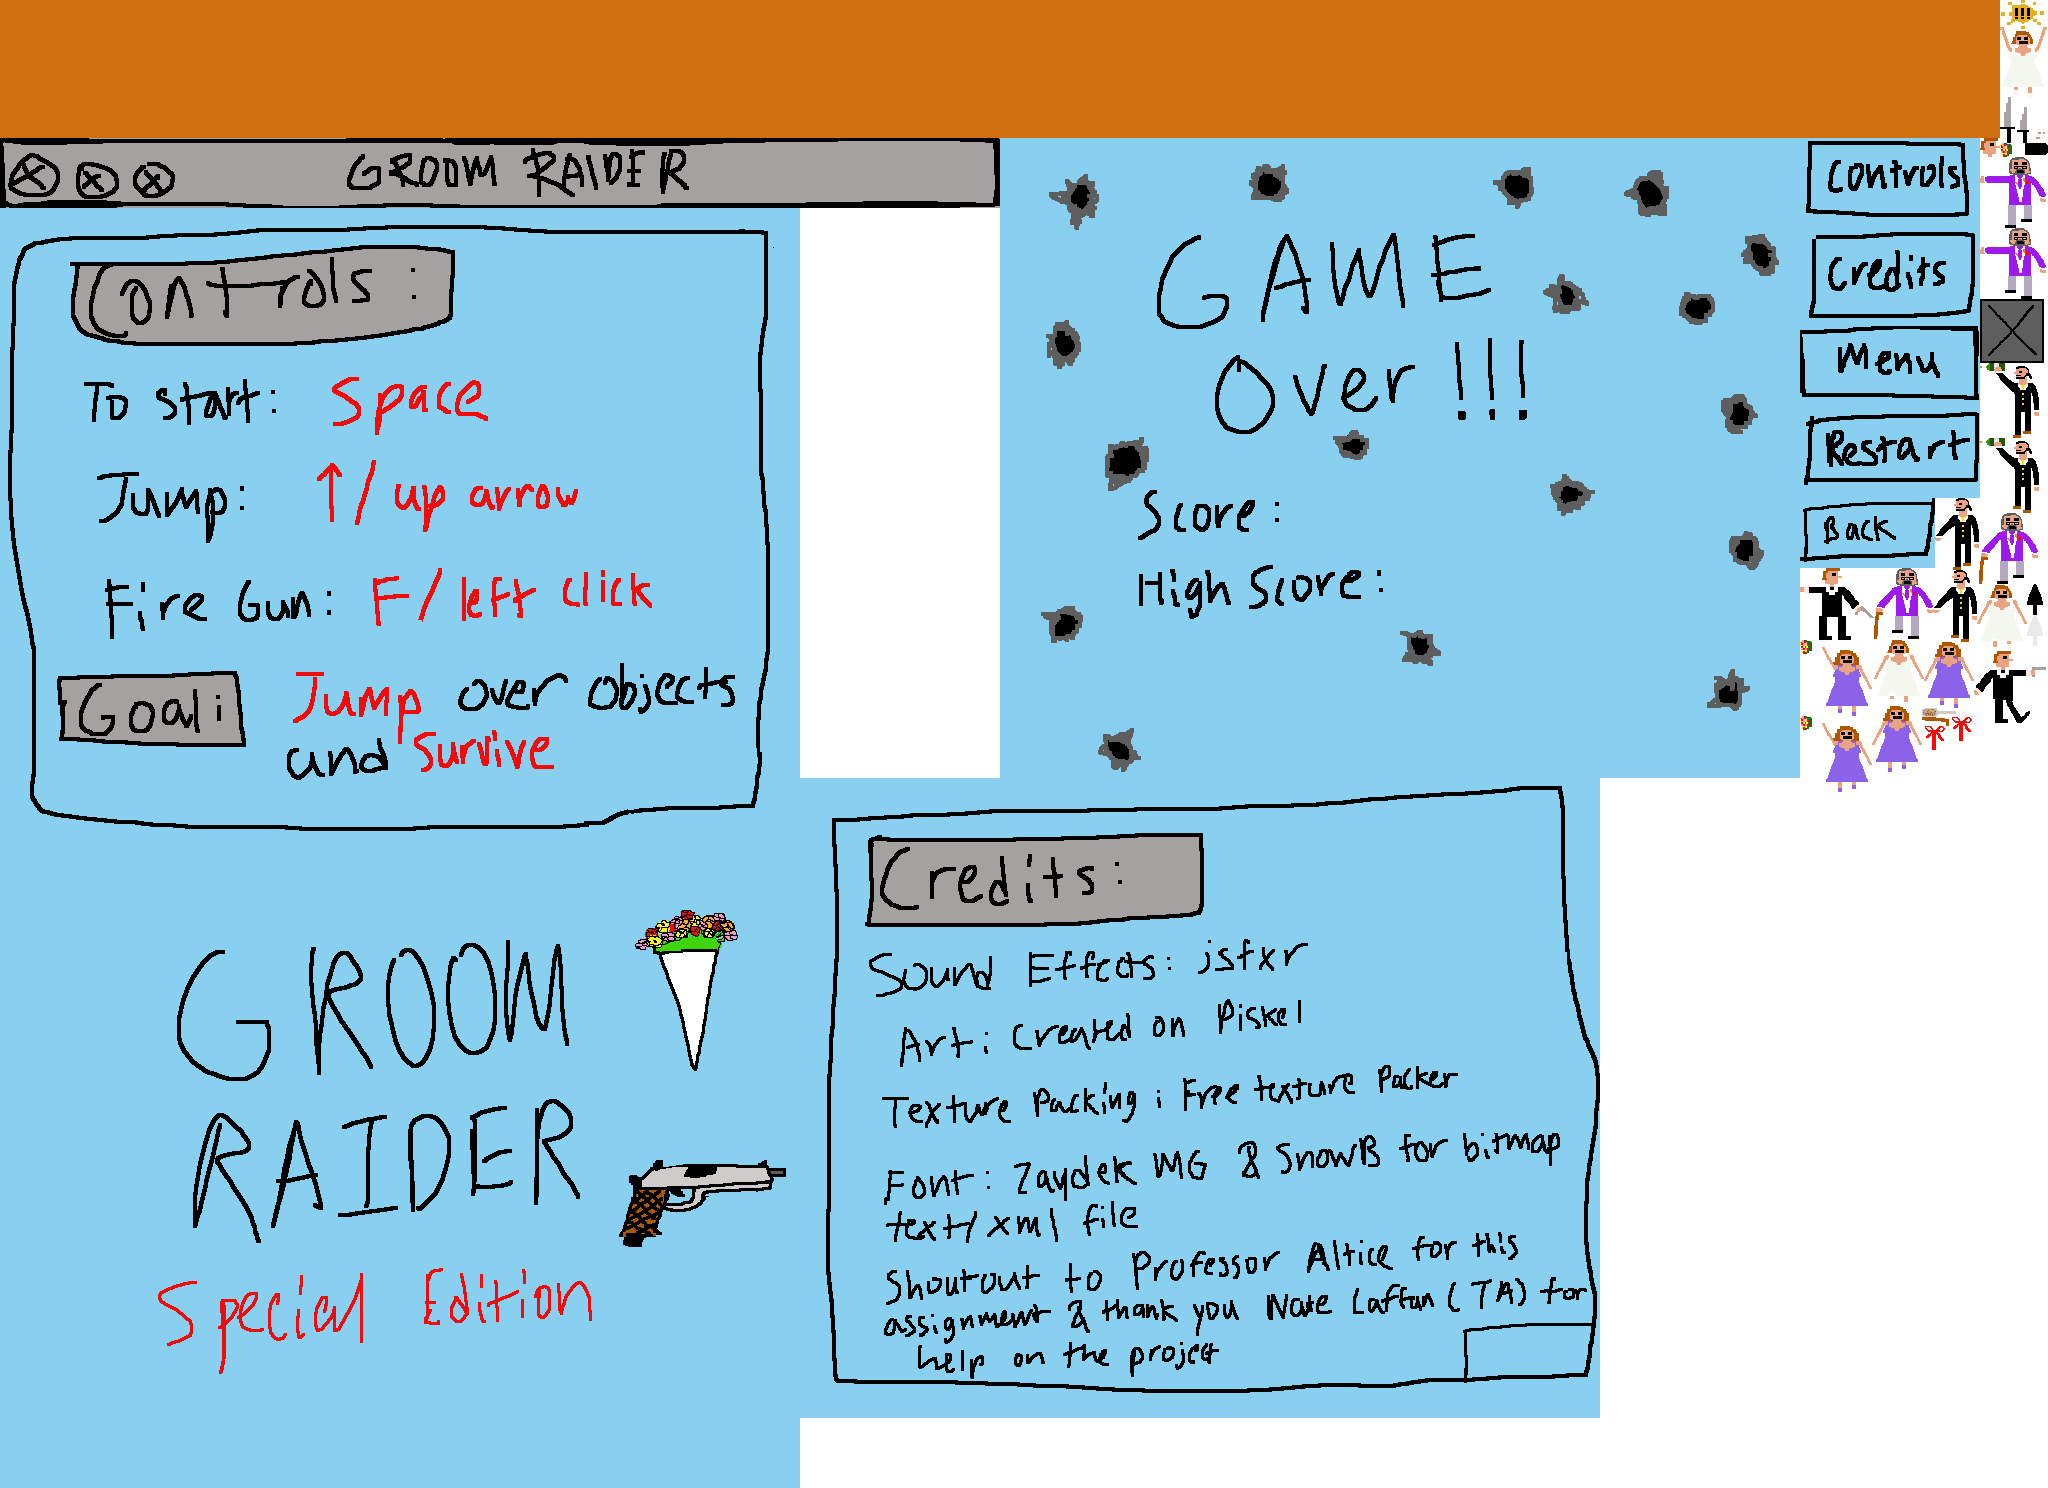 !!!
GROOM RAIDER
Controls:
To start: Space
Jump: ↑/ up arrow
Fire Gun: F/ left click
Goal: Jump over objects
and Survive
GAME
Over!!!
Score:
High Score:
Controls
Credits
Menu
Restart
Back
GROOM
RAIDER
Special Edition
Credits:
Sound Effects: jsfxr
Art: Created on Piskel
Texture Packing: Free texture Packer
Font: Zaydek MG & SnowB for bitmap
text/xml file
Shoutout to Professor Altice for this
assignment & thank you Nate Laffan (TA) for
help on the project